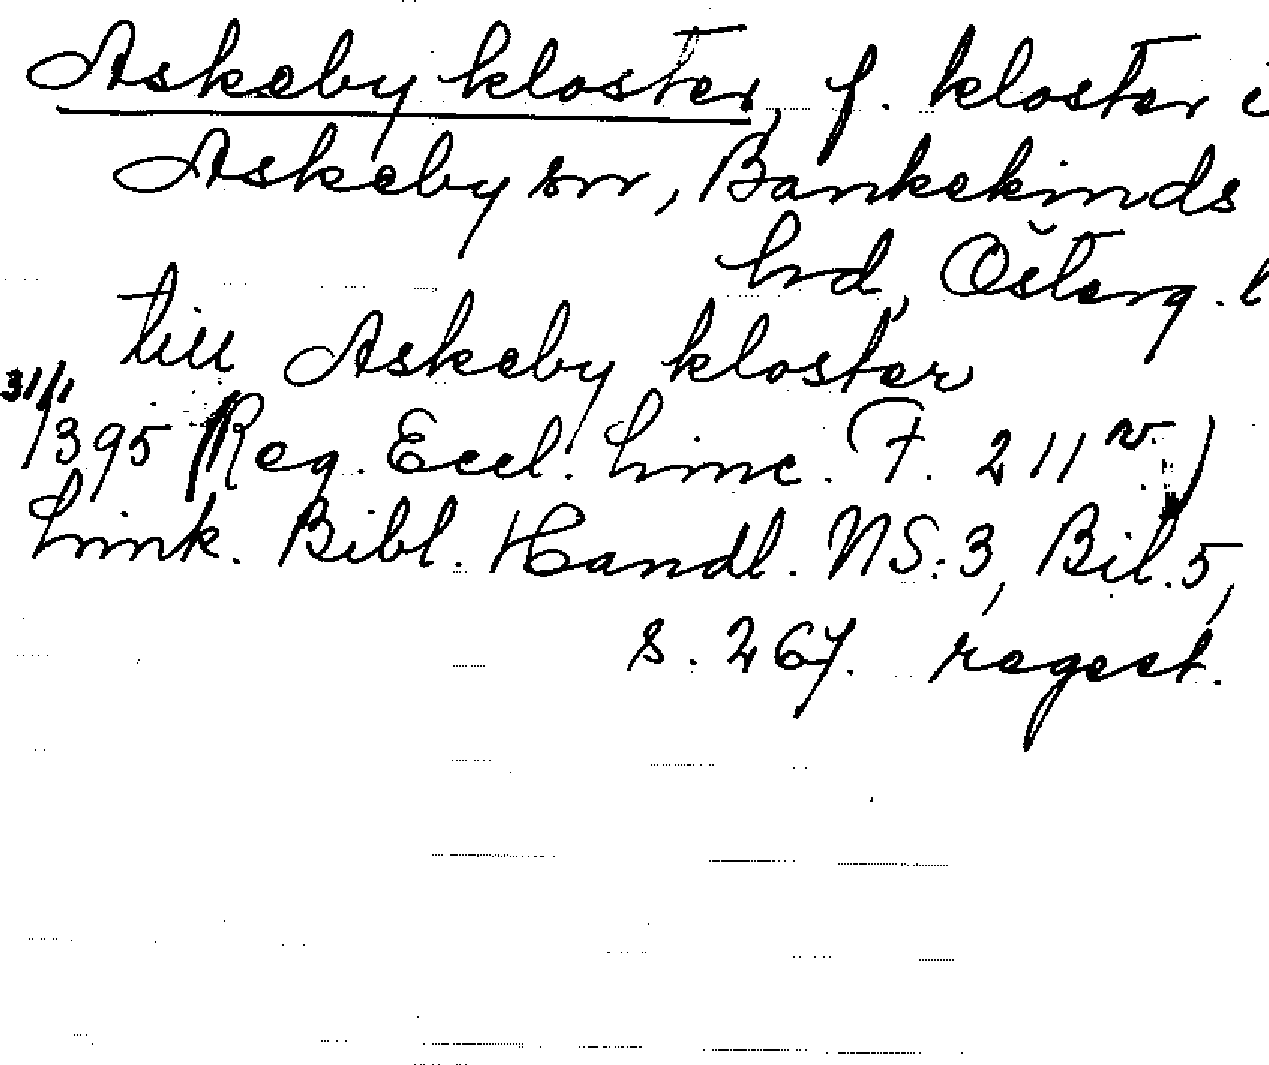 Askeby kloster, f. kloster i
Askeby sn, Bankekinds
hd, Österg. l
till Askeby kloster
31/1
1395 (Reg. Eccl. Linc. F. 211 v.)
Link. Bibl. Handl. NS:3, Bil. 5,
s. 267. regest.